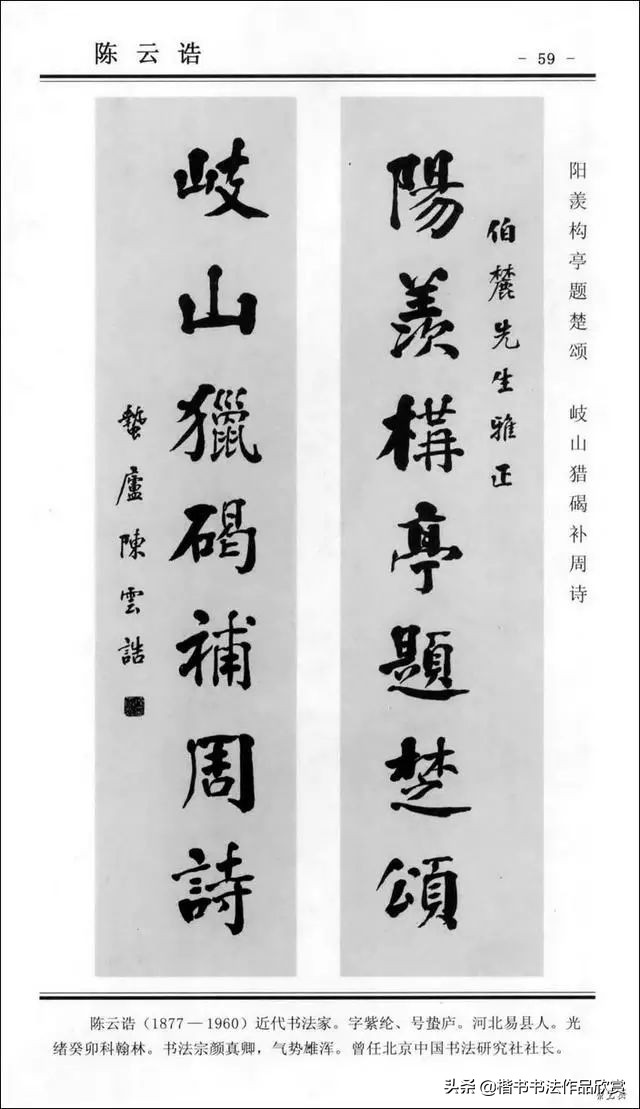 陈云诰
- 59 -
阳羡构亭题楚颂 岐山猎碣补周诗
伯麓先生雅正
陽羨構亭題楚頌
岐山獵碣補周詩
蟄廬陳雲誥
陈云诰（1877—1960）近代书法家。字紫纶、号蛰庐。河北易县人。光
绪癸卯科翰林。书法宗颜真卿，气势雄浑。曾任北京中国书法研究社社长。
头条@楷书书法作品欣赏